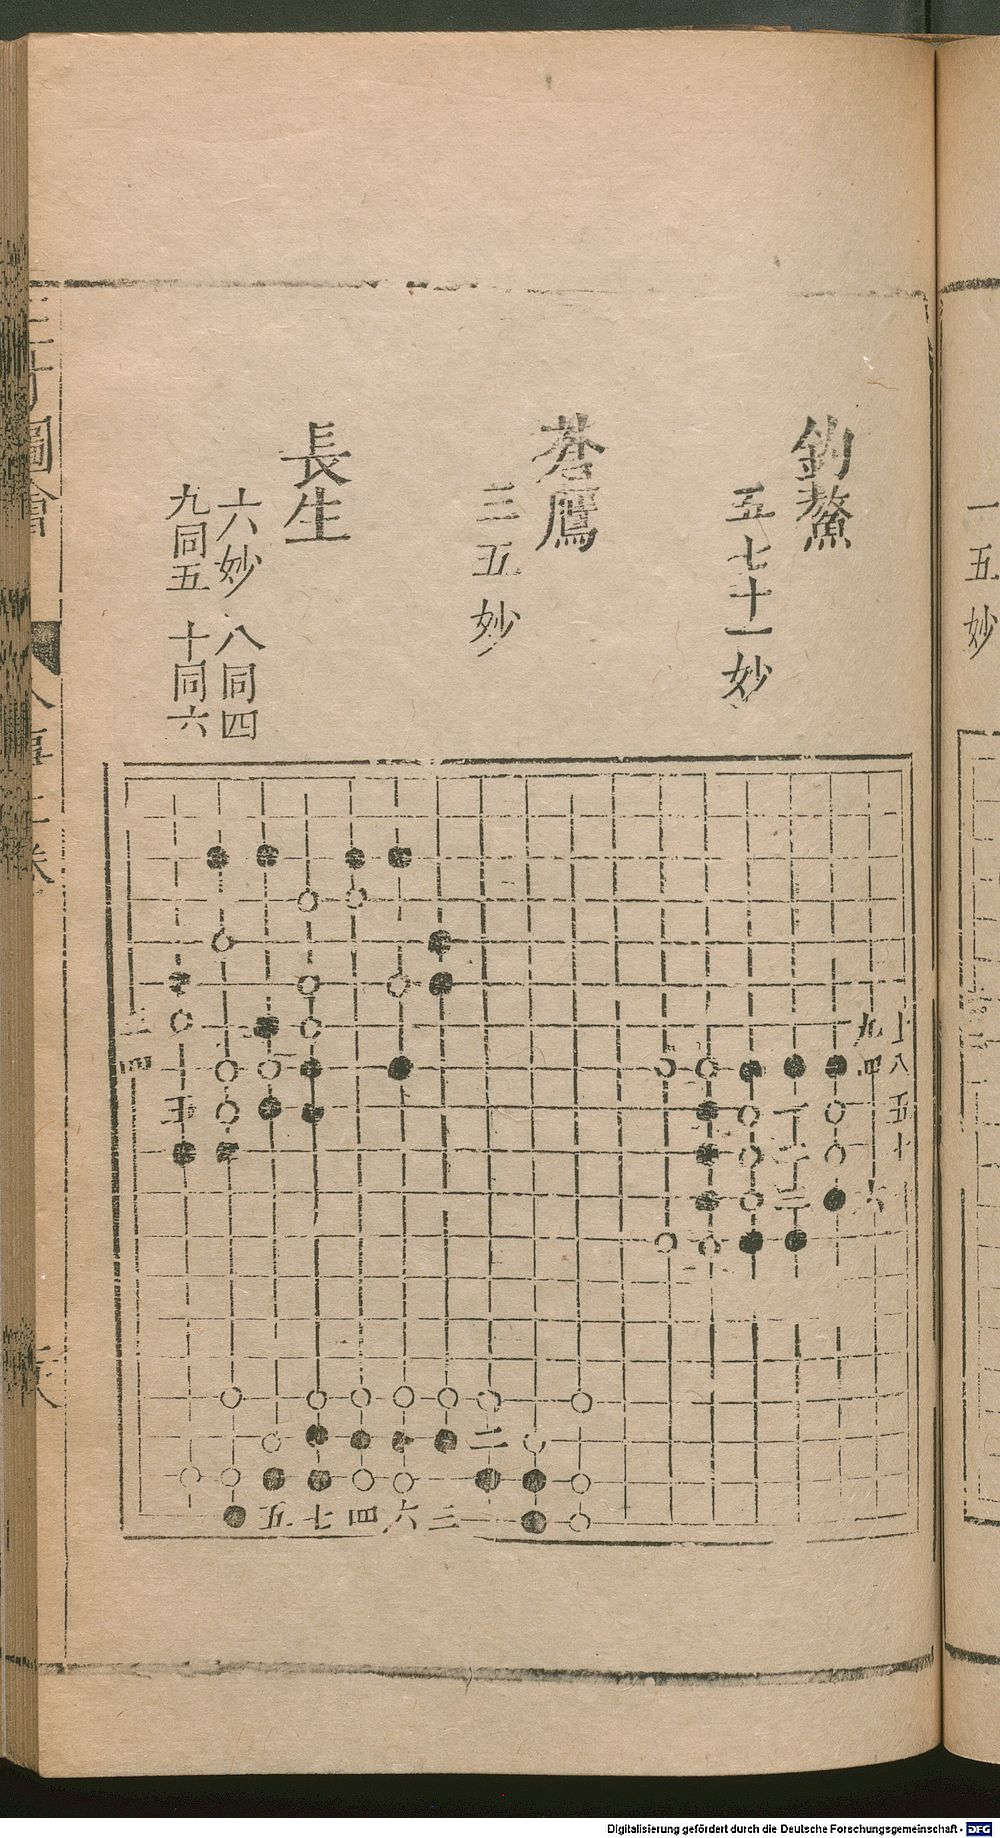 釣鰲
五七十一妙
蒼鷹
三五妙
長生
六妙 八同四
九同五 十同六
一五妙
九
八
四
五
十
一
二
三
六
三
四
五
二
五 十 四 六 三
圖會
人事二卷
Digitalisierung gefördert durch die Deutsche Forschungsgemeinschaft - DFG